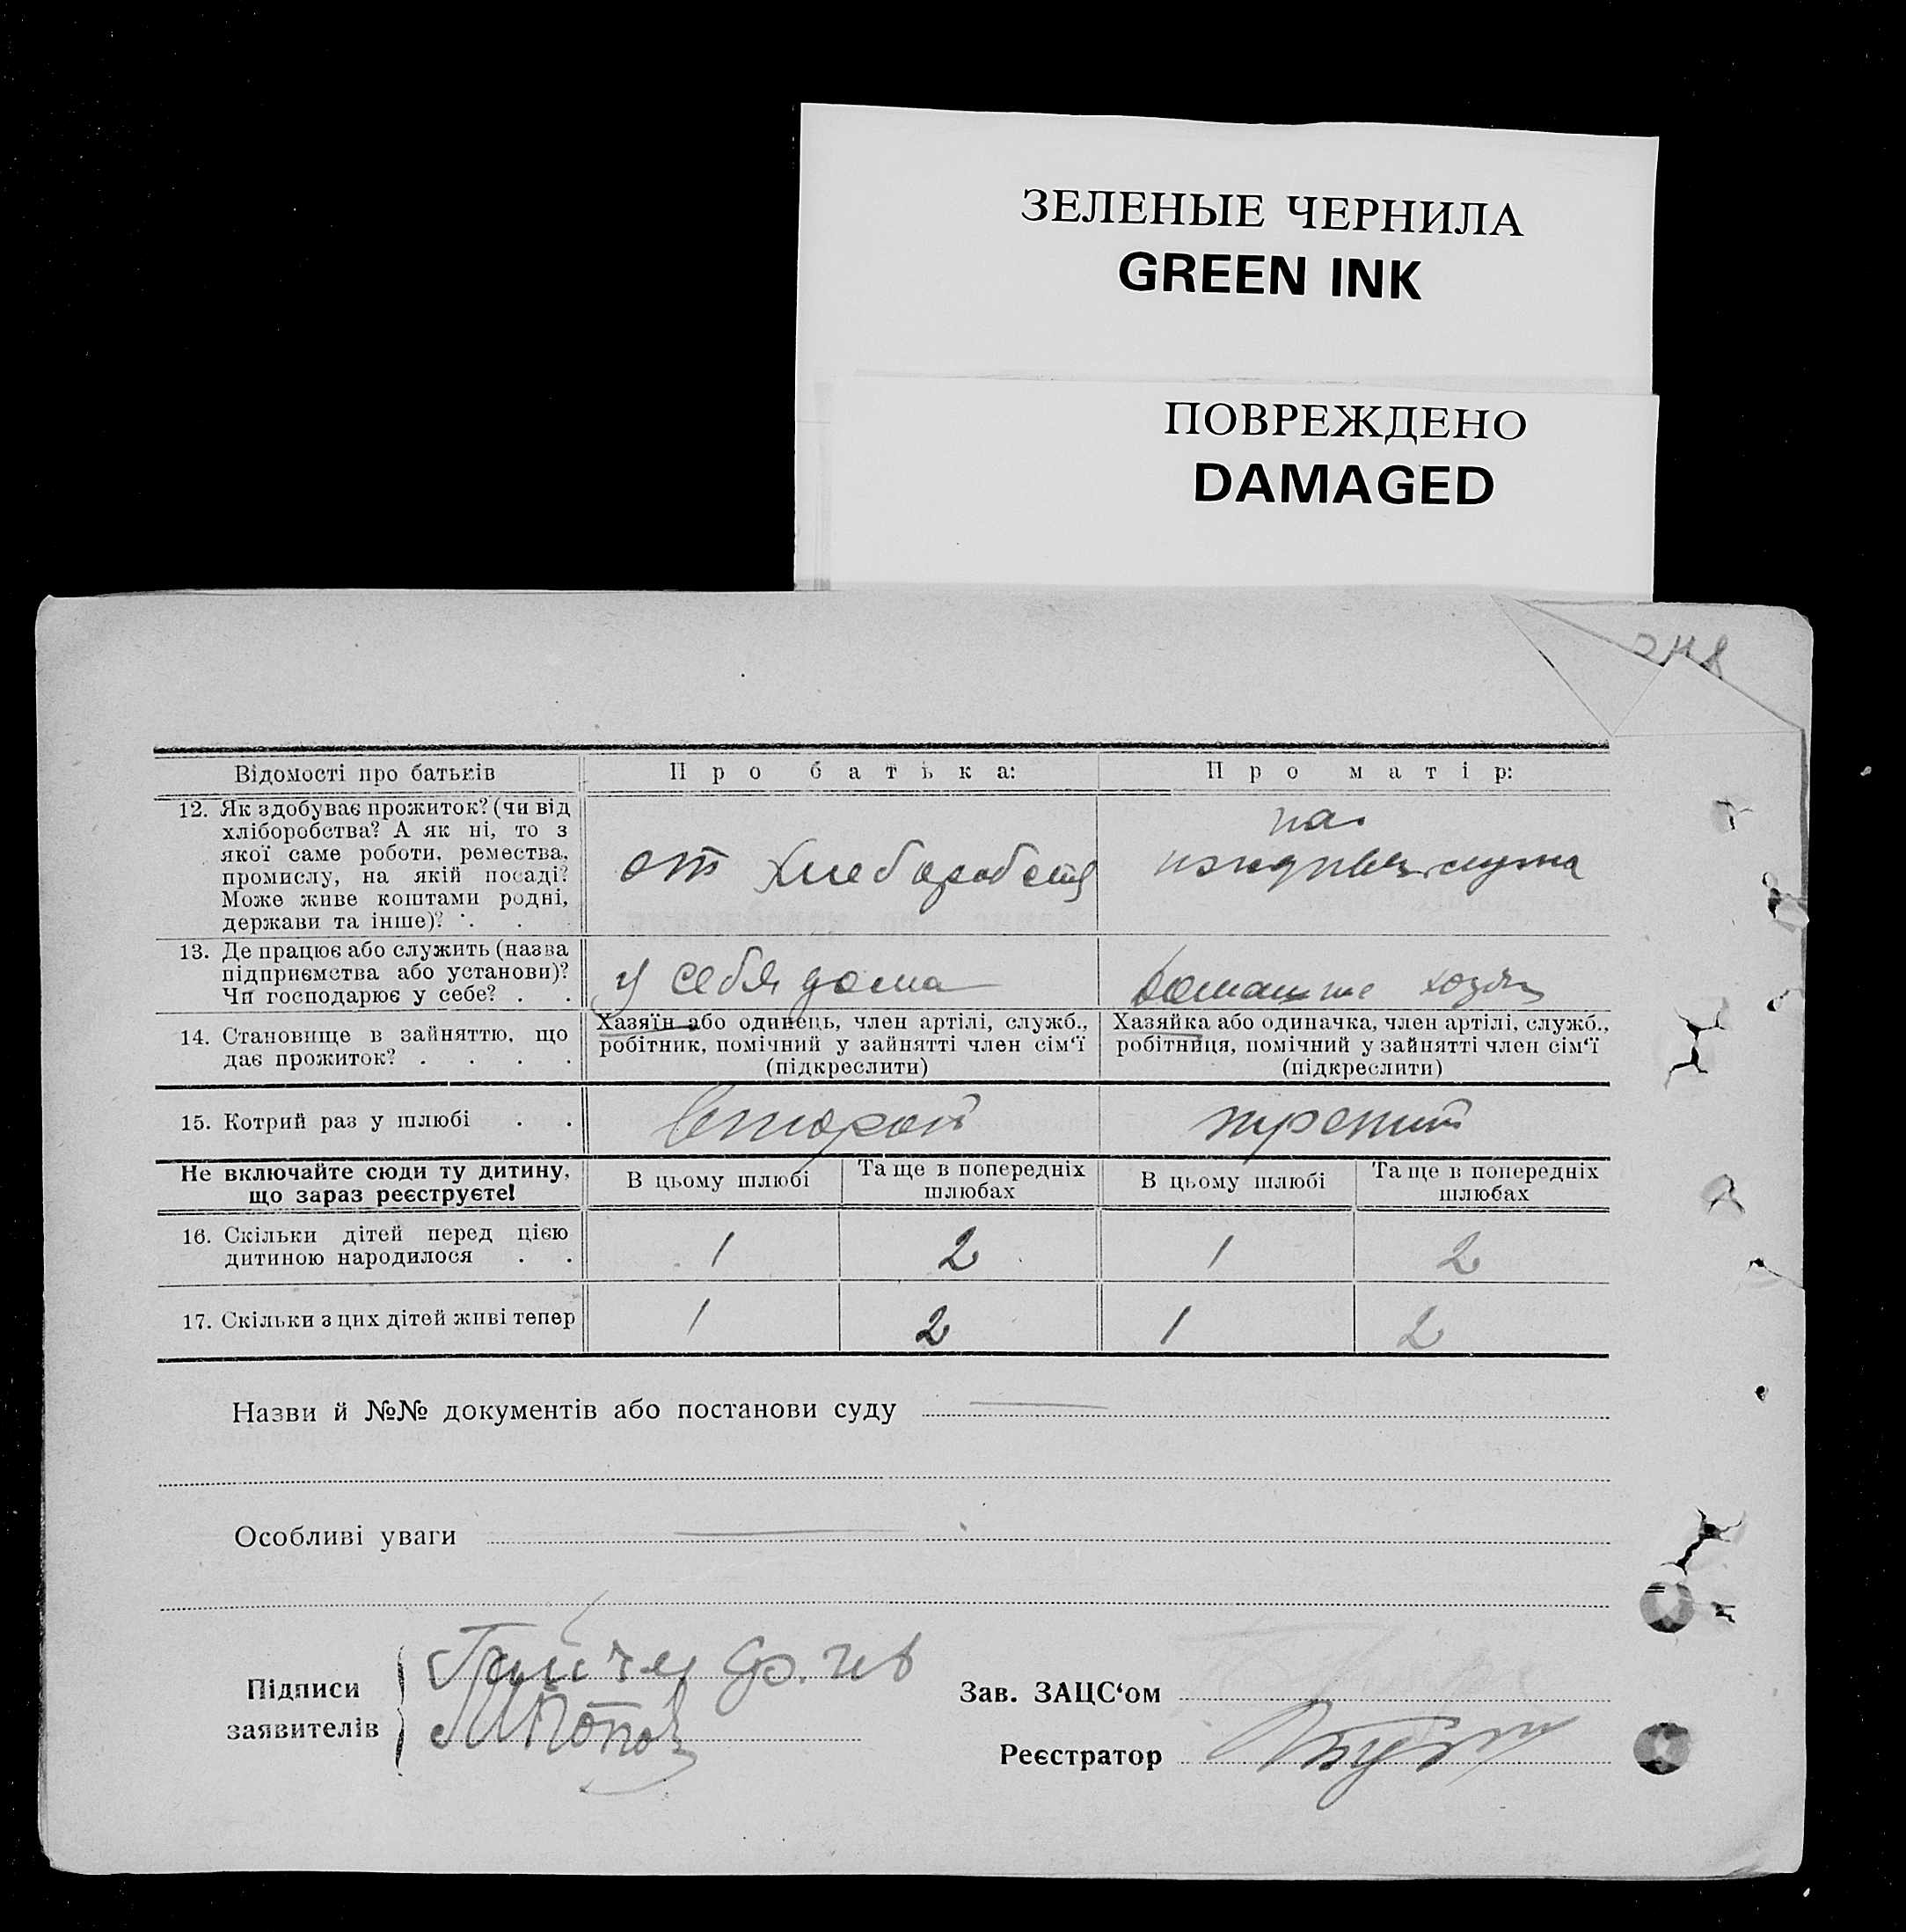 ЗЕЛЕНЫЕ ЧЕРНИЛА
GREEN INK
ПОВРЕЖДЕНО
DAMAGED
Відомості про батьків
Про батька:
Про матір:
12. Як здобуває прожиток? (чи від
хліборобства? А як ні, то з
якої саме роботи, ремества,
промислу, на якій посаді?
Може живе коштами родні,
держави та інше)? . .
от хлеборобств
на
иждивен. мужа
13. Де працює або служить (назва
підприємства або установи)?
Чи господарює у себе? . .
у себя дома
домашне хозяй
14. Становище в зайняттю, що
дає прожиток? . . . .
Хазяїн або одинець, член артілі, служб.,
робітник, помічний у зайнятті член сім'ї
(підкреслити)
Хазяйка або одиначка, член артілі, служб.,
робітниця, помічний у зайнятті член сім'ї
(підкреслити)
15. Котрий раз у шлюбі . .
второй
третий
Не включайте сюди ту дитину,
що зараз реєструєте!
В цьому шлюбі
Та ще в попередніх
шлюбах
В цьому шлюбі
Та ще в попередніх
шлюбах
16. Скільки дітей перед цією
дитиною народилося . .
1 2 1 2
17. Скільки з цих дітей живі тепер
1 2 1 2
Назви й №№ документів або постанови суду
Особливі уваги
Підписи
заявителів
МПопов
Зав. ЗАЦС'ом
Реєстратор